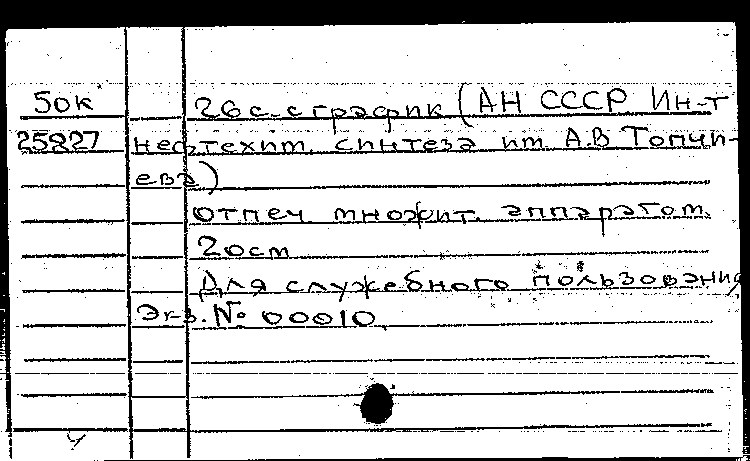 50к 26 с. с график (АН СССР Ин-т
25827 нефтехим. синтеза им А.В Топчи-
ева)
отпеч множит. аппаратом.
20см
Для служебного пользования
Экз. № 00010.